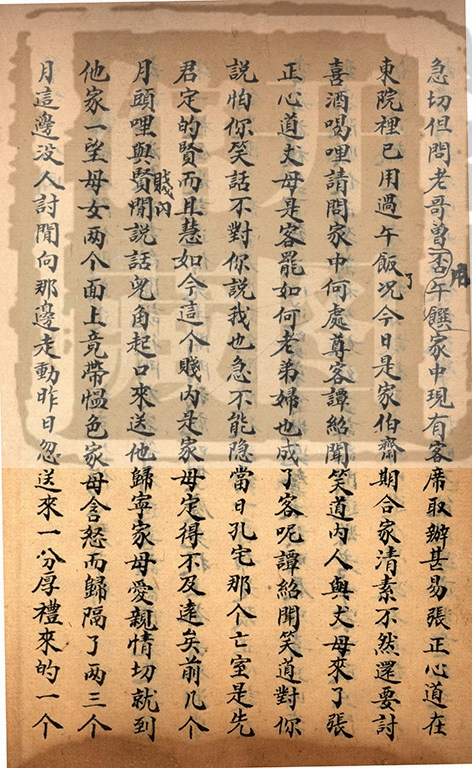 急切但問老哥曾否用午饌家中現有客席取辦甚易張正心道在
東院裡已用過午飯了况今日是家伯齋期合家清素不然還要討
喜酒喝哩請問家中何處尊客譚紹聞笑道內人與丈母來了張
正心道丈母是客罷如何老弟婦也成了客呢譚紹聞笑道對你
說怕你笑話不對你說我也急不能隐當日孔宅那个亡室是先
君定的賢而且慧如今這个賤内是家母定得不及逺矣前几个
月頭哩與賢賤內閒説話兒角起口來送他歸寧家母愛親情切就到
他家一望母女两个面上竟帶愠色家母含怒而歸隔了两三个
月這邊没人討閒向那邊走動昨日忽送來一分厚禮來的一个